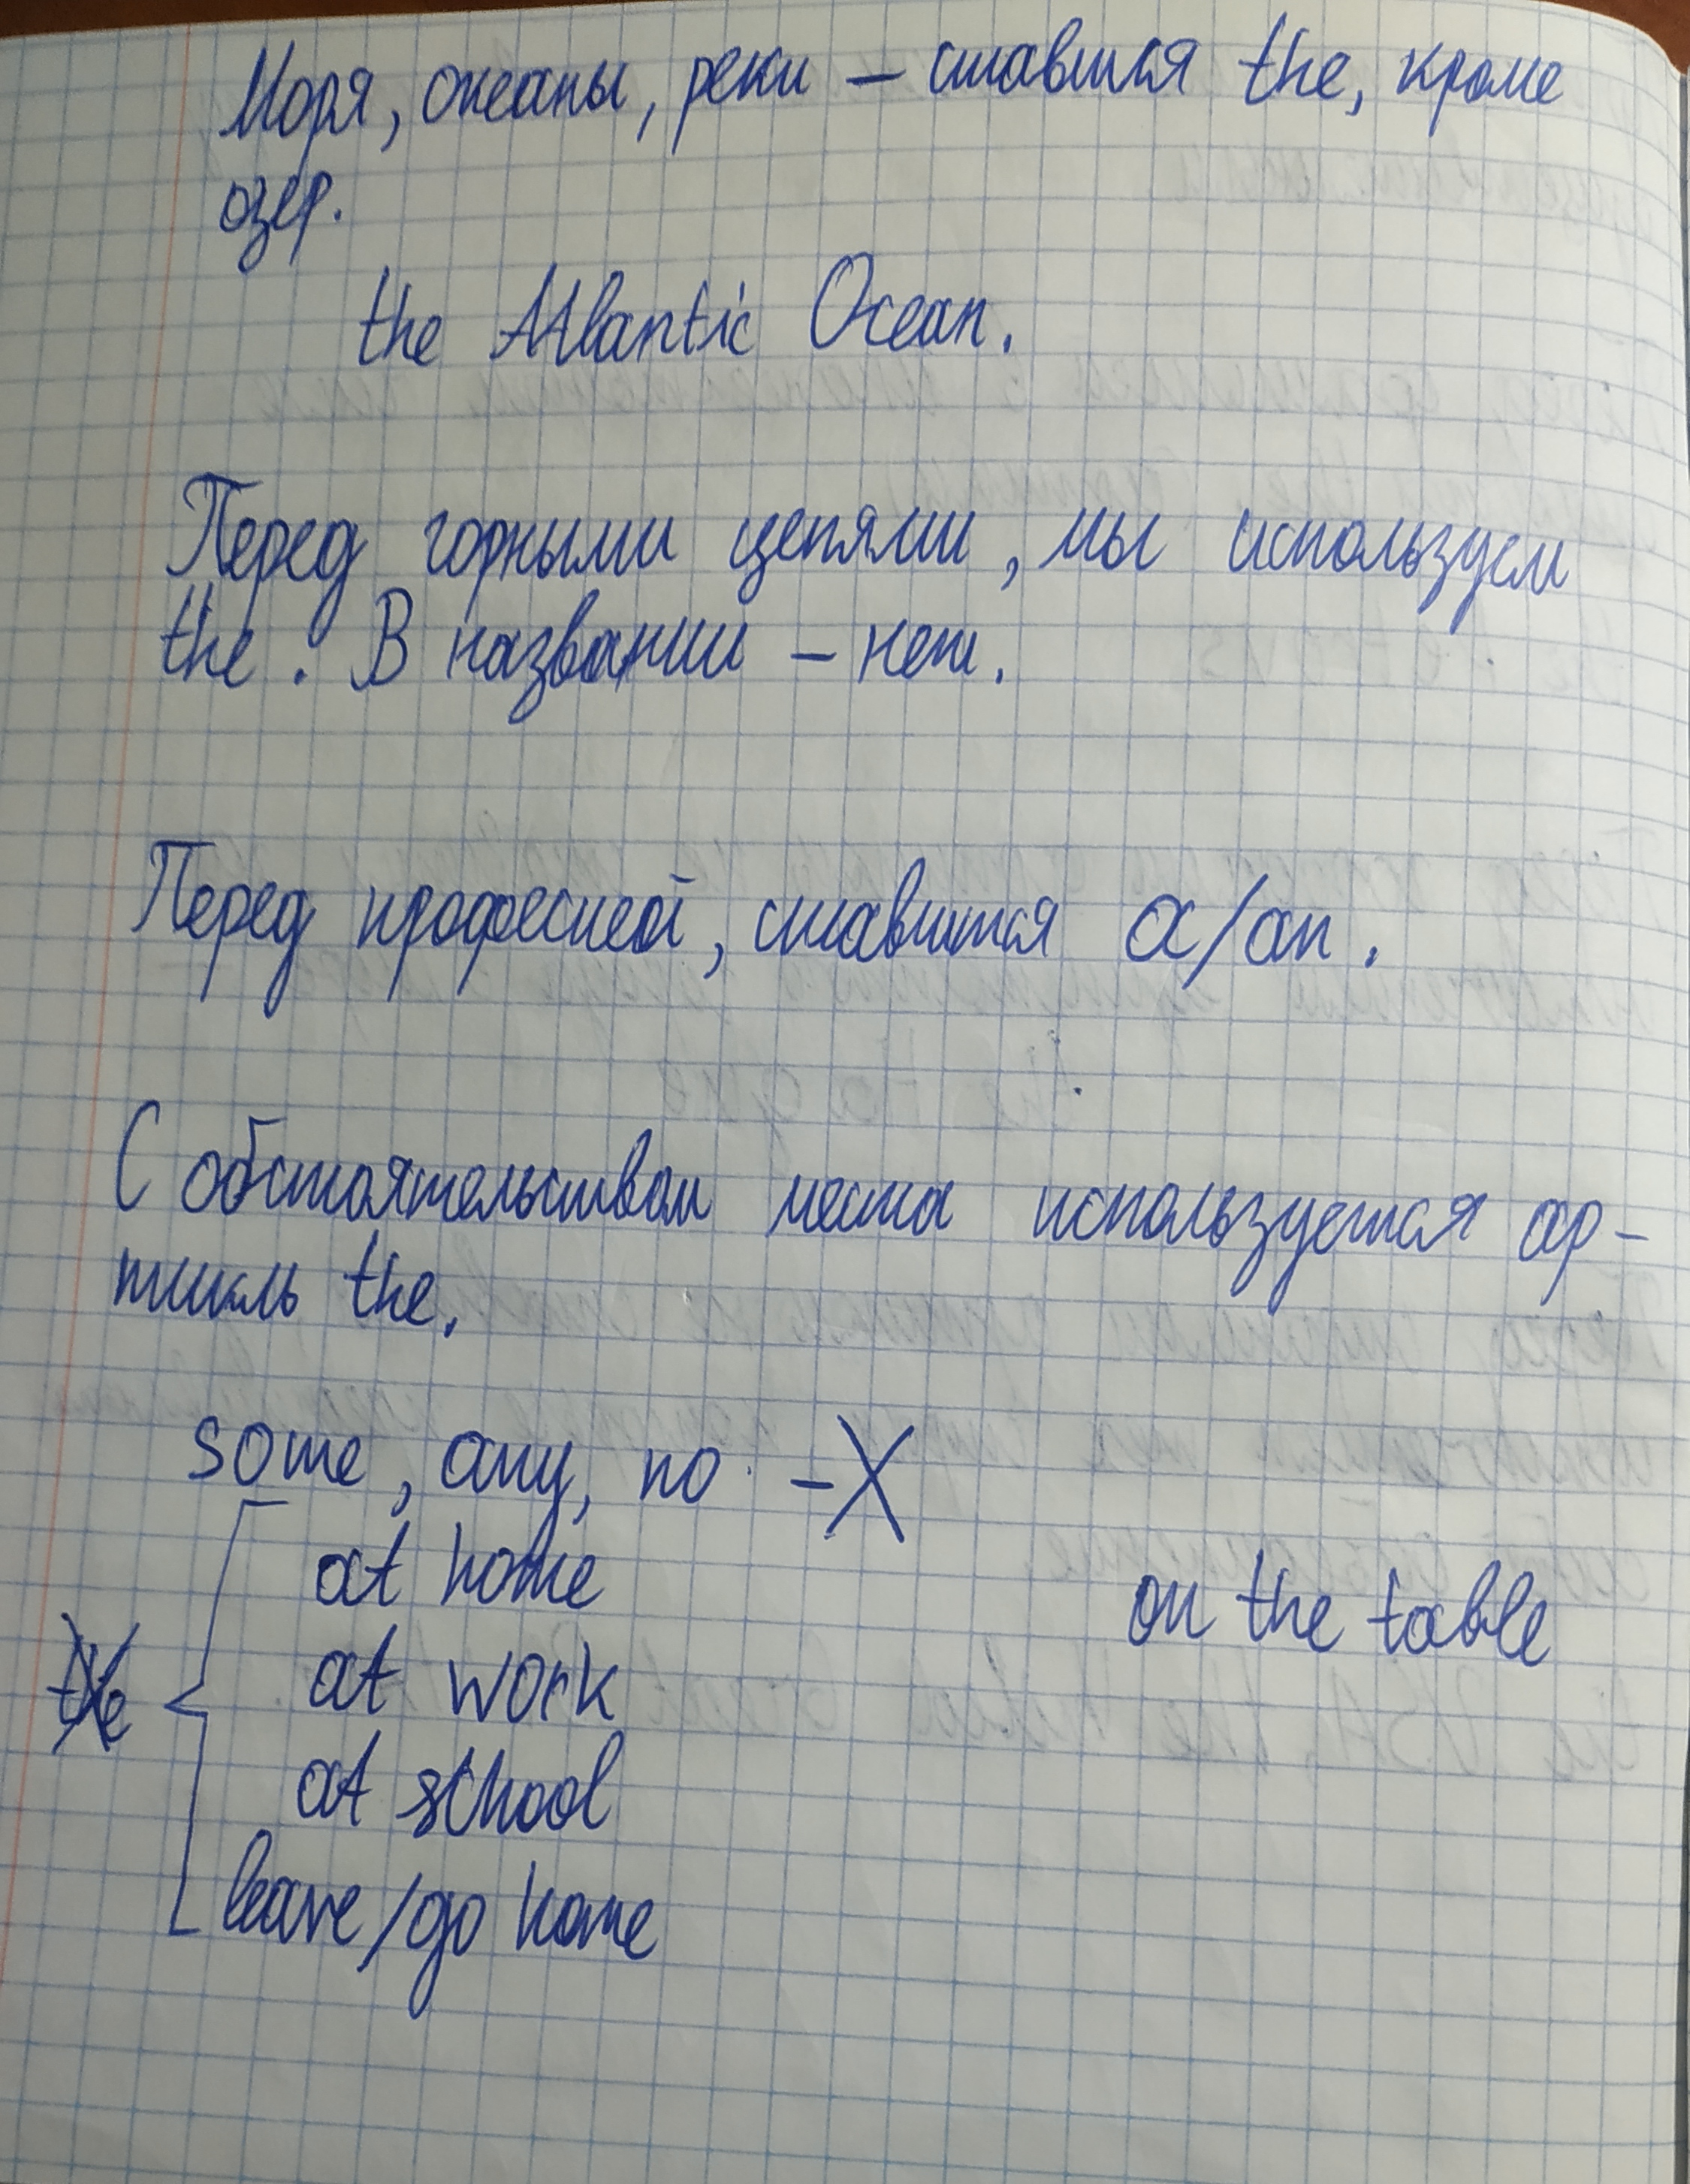 Моря, океаны, реки – ставится the, кроме
озер.
the Atlantic Ocean.
Перед горными цепями, мы используем
the. В названии – нет.
Перед професией, ставится a/an.
С обстоятельством места используется ар-
тикль the.
some, any, no – X
at home
on the table
the
at work
at school
leave/go home